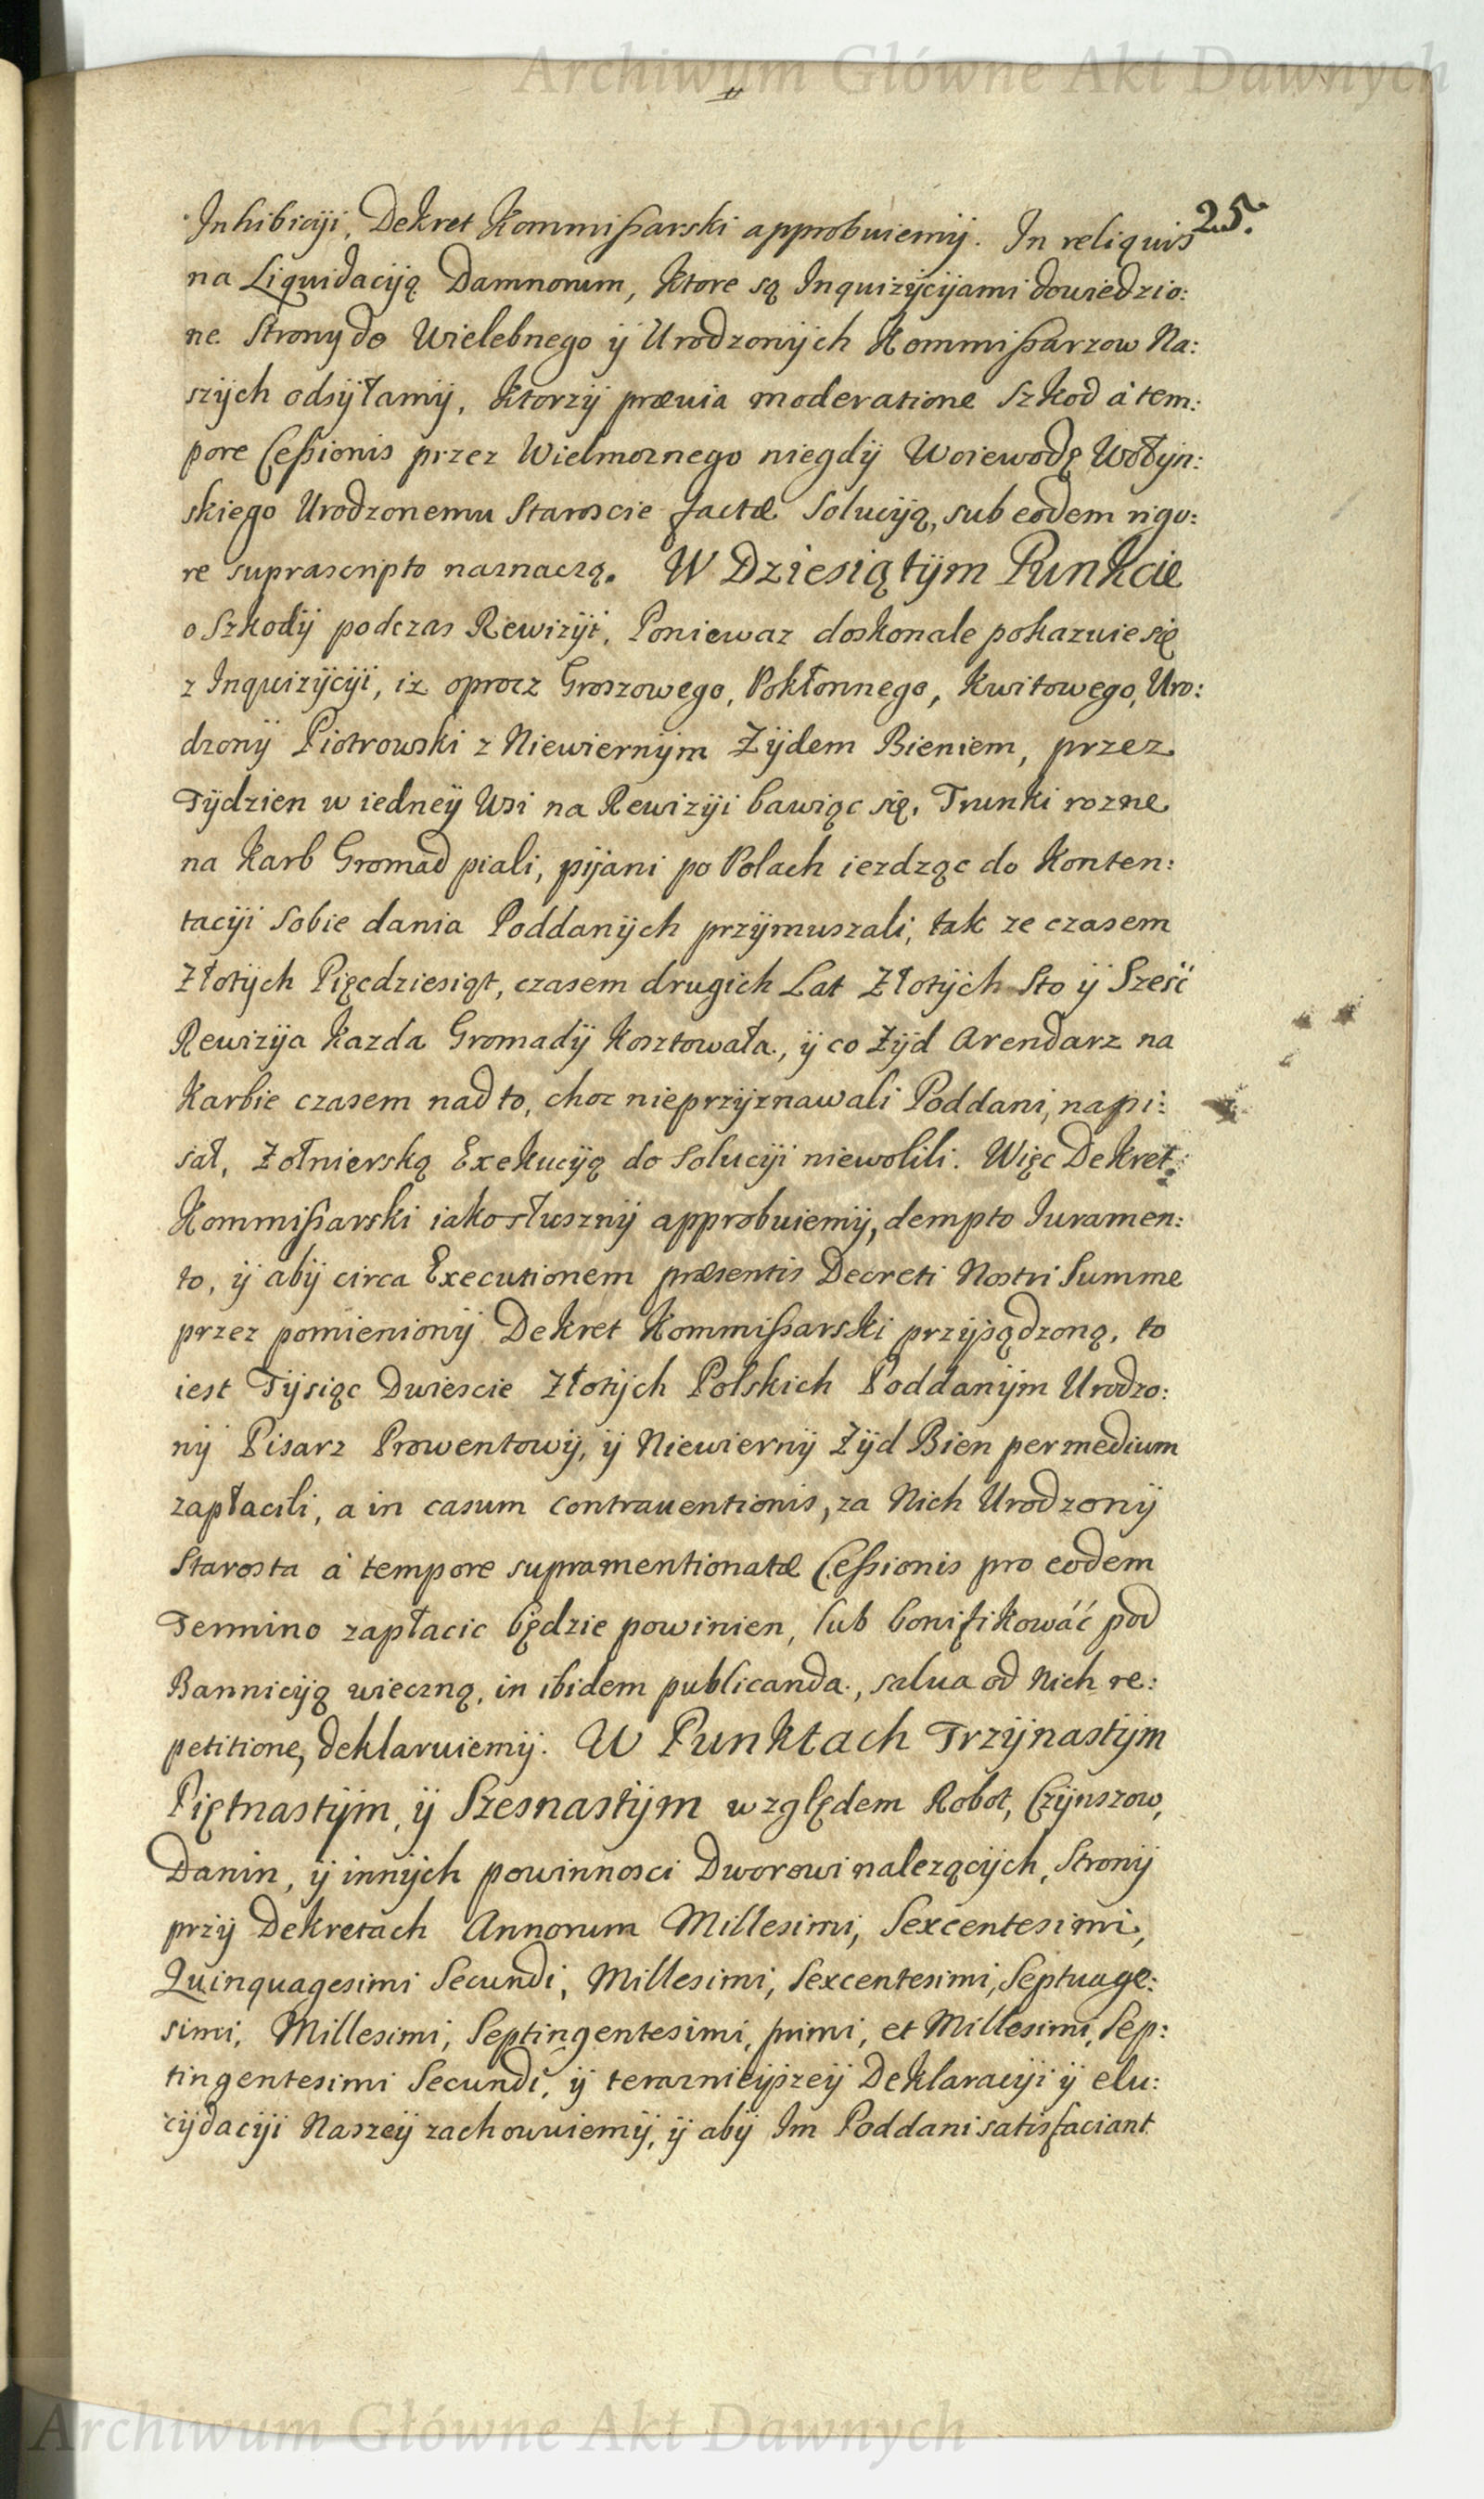 Archiwum Główne Akt Dawnych
25.
Inhibicÿi, Dekret Kommißarski approbuiemÿ. In reliquis
na Liquidacÿią Damnorum, ktore są Inquizÿcÿiami dowiedzio:
ne Strony do Wielebnego ÿ Urodzonÿch Kommißarzow Na:
szÿch odsÿłamÿ, ktorzÿ prævia moderatione Szkod à tem:
pore Ceßionis przez Wielmoznego niegdÿ Woiewodę Wołÿn:
skiego Urodzonemu Staroscie factæ Solucÿią, sub eodem rigo:
re suprascripto naznaczą. W Dziesiątÿm Punkcie
o Szkodÿ podczas Rewizÿi, Poniewaz doskonale pokazuie się
z Inquizÿcÿi, iz oprocz Groszowego, Pokłonnego, Kwitowego, Uro:
dzonÿ Piotrowski z Niewiernÿm Zÿdem Bieniem, przez
Tÿdzien w iedneÿ Wsi na Rewizÿi bawiąc się, Trunki rozne
na Karb Gromad piali, pÿani po Polach iezdząc do Konten:
tacÿi Sobie dania Poddanÿch przÿmuszali, tak ze czasem
Złotÿch Pięcdziesiąt, czasem drugich Lat Złotÿch Sto ÿ Sześć
Rewizÿa kazda Gromadÿ kosztowała, ÿ co Zÿd Arendarz na
Karbie czasem nad to, choc nieprzÿznawali Poddani, napi:
sał, Zołnierską Exekucÿią do Solucÿi niewolili. Więc Dekret
Kommißarski iako słusznÿ approbuiemÿ, dempto Iuramen:
to, ÿ abÿ circa Executionem præsentis Decreti Nostri Summe
przez pomienionÿ Dekret Kommißarski przÿsądzoną, to
iest Tÿsiąc Dwiescie Złotÿch Polskich Poddanÿm Urodzo:
nÿ Pisarz Prowentowÿ, ÿ Niewiernÿ Zÿd Bien per medium
zapłacili, a in casum contraventionis, za Nich Urodzonÿ
Starosta à tempore supramentionatæ Ceßionis pro eodem
Termino zapłacic będzie powinien, lub bonifikowáć pod
Bannicÿią wieczną, in ibidem publicanda, salva od Nich re:
petitione, deklaruiemÿ. W Punktach Trzÿnastÿm
Piętnastÿm, ÿ Szesnastÿm względem Robot, Czÿnszow,
Danin, ÿ innÿch powinnosci Dworowi nalezącÿch, Stronÿ
przÿ Dekretach Annorum Millesimi, Sexcentesimi,
Quinquagesimi Secundi, Millesimi, Sexcentesimi, Septuage:
simi, Millesimi, Septingentesimi, primi, et Millesimi, Sep:
tingentesimi Secundi, ÿ teraznieÿszeÿ Deklaracÿi ÿ elu:
cÿdacÿi Naszeÿ zachowuiemÿ, ÿ abÿ Im Poddani satisfaciant
Archiwum Główne Akt Dawnych